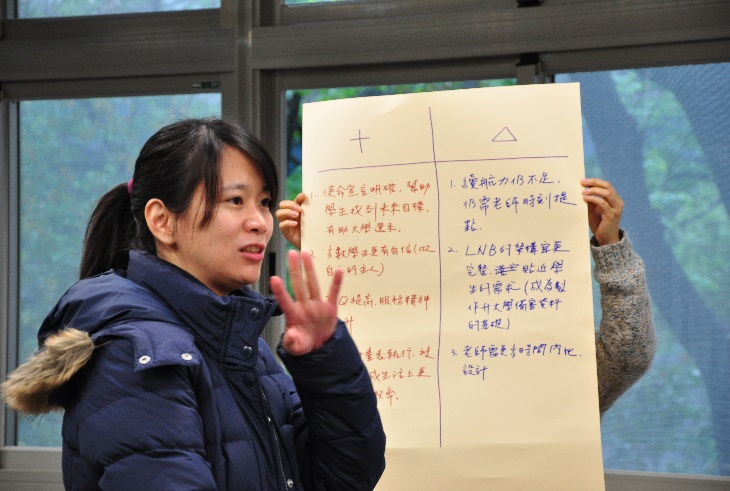 ＋
1. 使命宣言明確，幫助
學生找到未來目標，
有助大學選系.
2. 多數學生更有自信(做
自 的主人)
Q提高.服務精神
升
量表執行,
成生活上更
效率.
△
1. 續航力仍不足,
仍需老師時刻提
點.
2. LNB的架構宜更
完整、 貼近學
生的需求(成為製
作升大學備審資料
的基礎)
3. 老師需更多時間內化.
設計